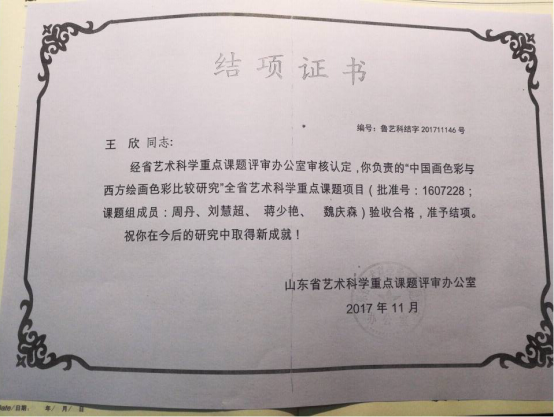 结项证书
编号：鲁艺科结字 201711146 号
王 欣 同志：
经省艺术科学重点课题评审办公室审核认定，你负责的“中国画色彩与
西方绘画色彩比较研究”全省艺术科学重点课题项目（批准号：1607228；
课题组成员：周丹、刘慧超、 蒋少艳、 魏庆森）验收合格，准予结项。
祝你在今后的研究中取得新成就！
山东省艺术科学重点课题评审办公室
2017 年 11 月
Date/日期： 年/ 月/ 日